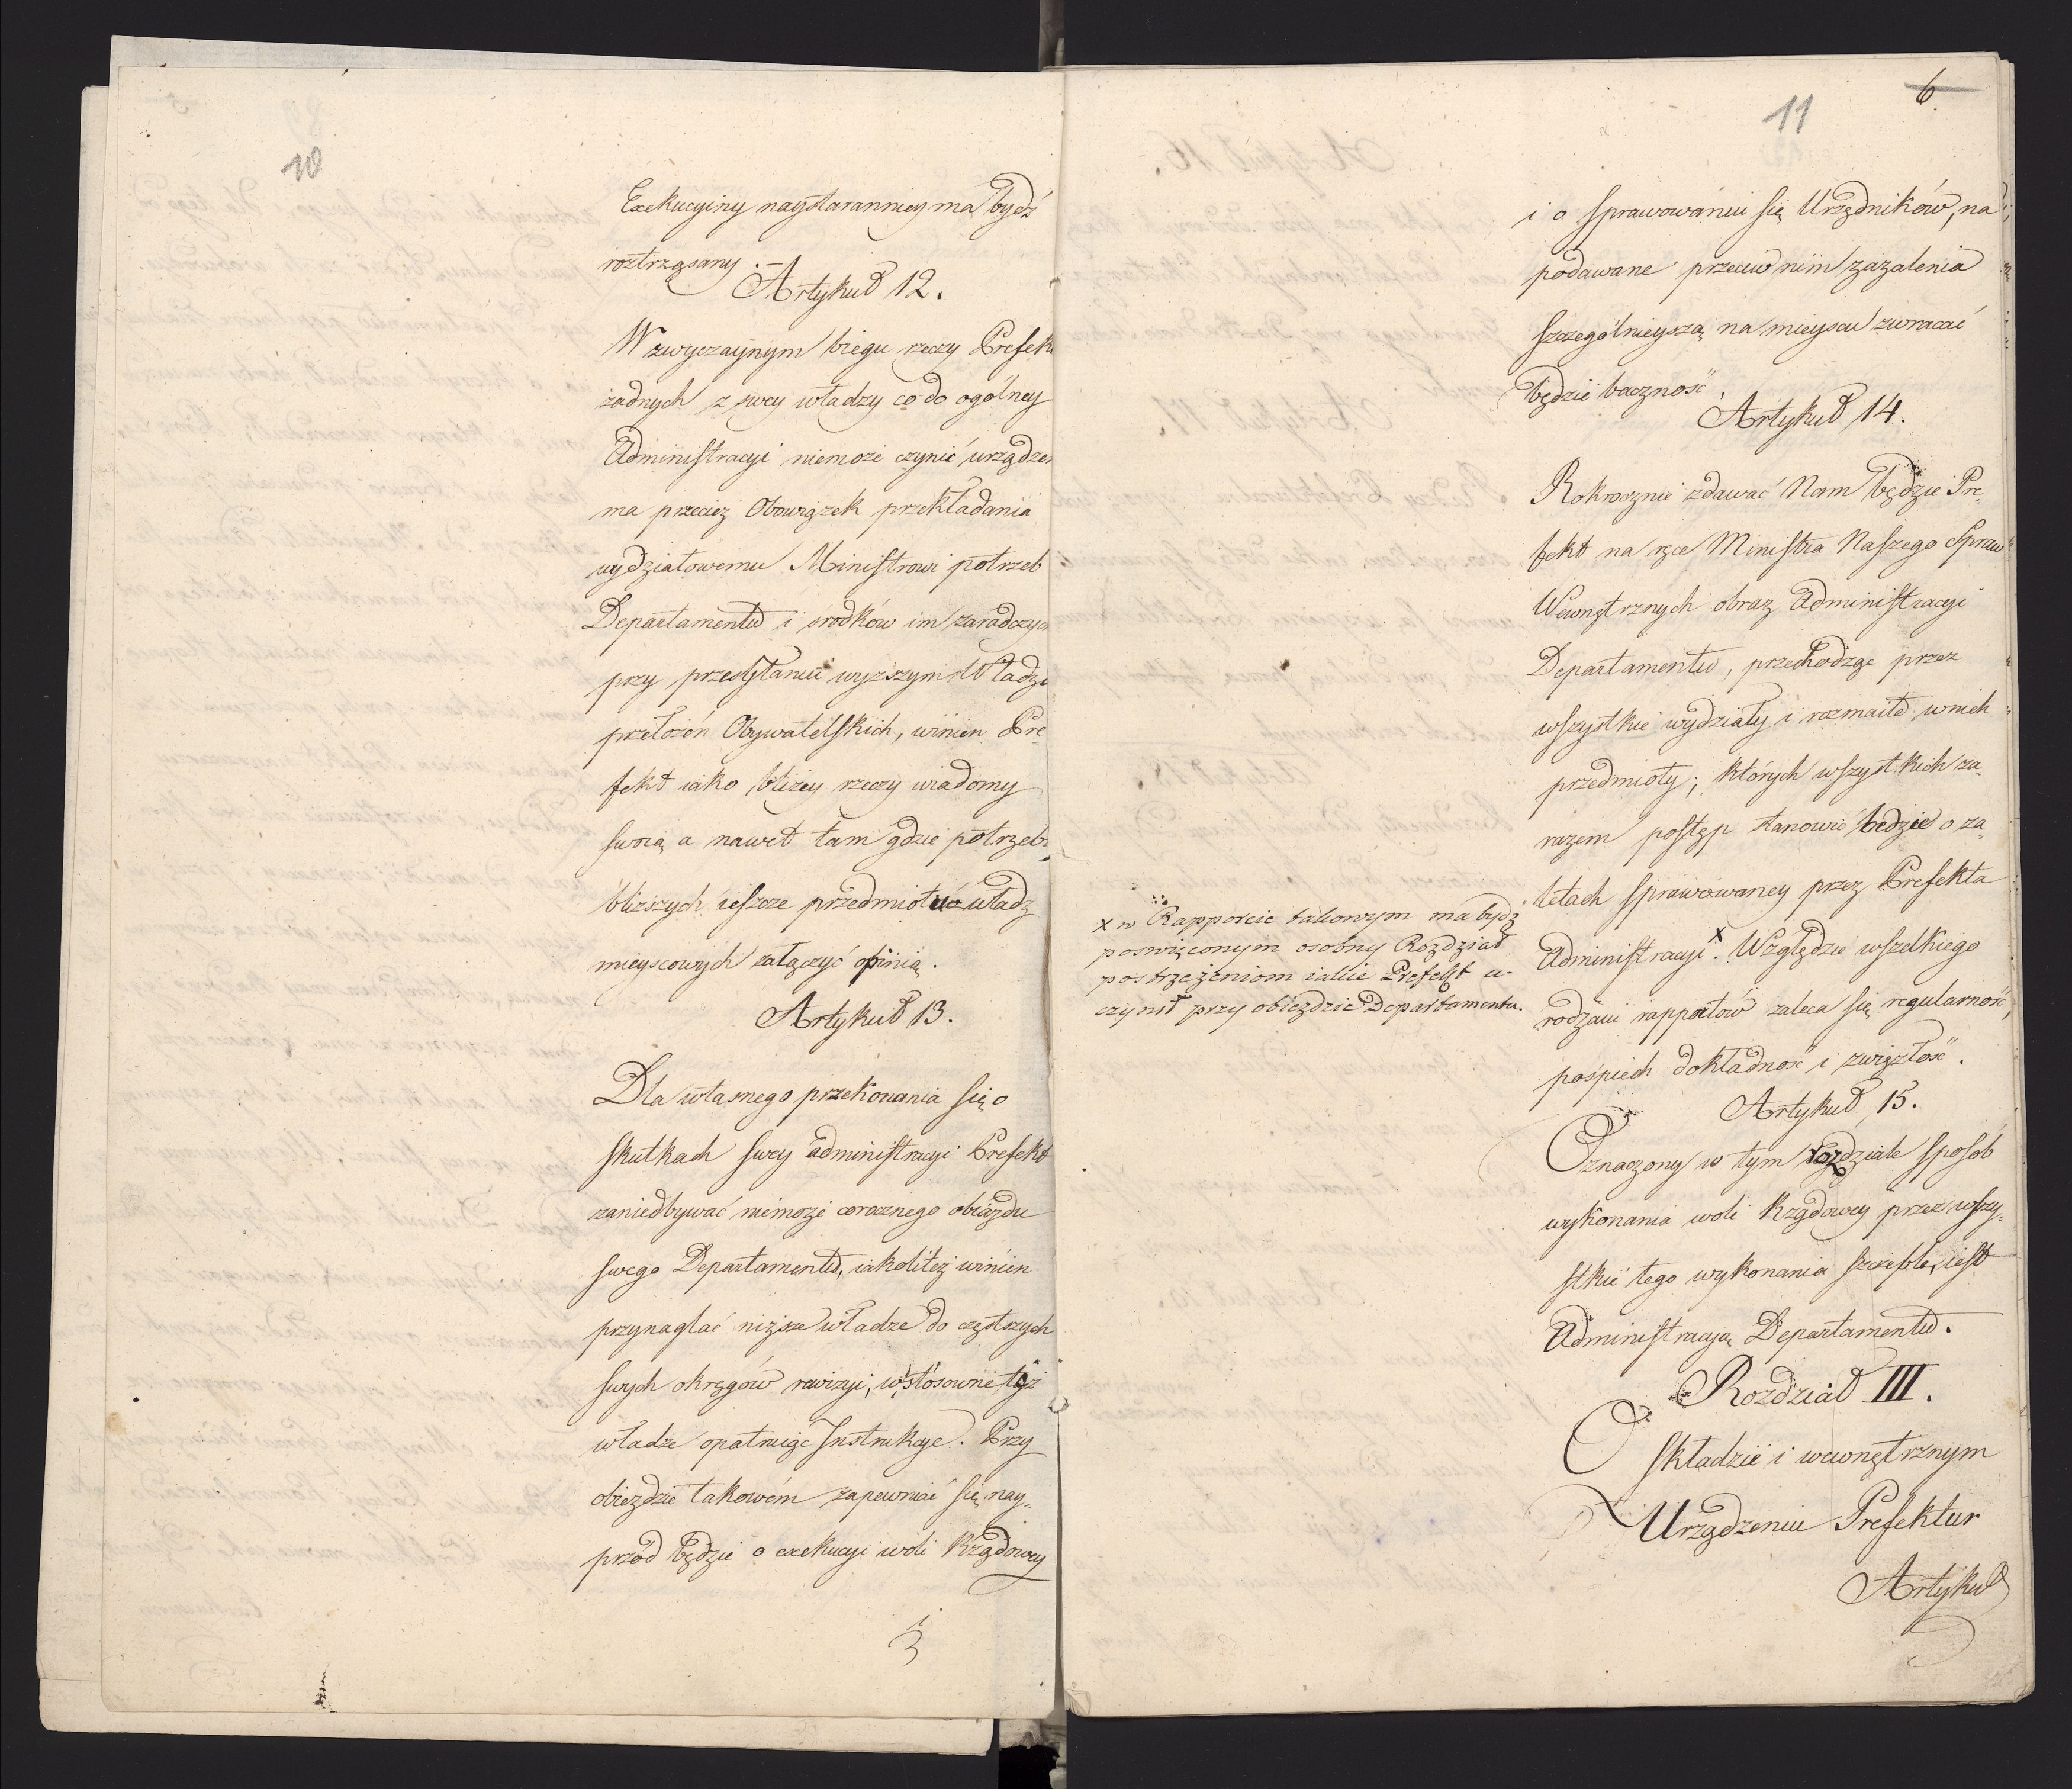 10
Exekucyiny naystaranniey ma bydź
roztrząsany . –
Artykuł 12.
W zwyczaynym biegu rzeczy Prefek
żadnych z swey władzy co do ogólney
Administracyi niemoże czynić urządze
ma przecież Obowiązek przekładania
wydziałowemu Ministrowi potrzeb
Departamentu i srodków im zaradczych
przy przesyłaniu wyzszym Władz
przełożeń Obywatelskich, winien Pre-
fekt iako bliżey rzeczy wiadomy
swoią a nawet tam gdzie potrzeb
bliższych ieszcze przedmiotu władz
mieyscowych załączyć opinią.
Artykuł 13.
Dla własnego przekonania się o
skutkach swey administracyi Prefekt
zaniedbywać niemoże corocznego obiazdu
swego Departamentu, iakoliteż winien
przynaglać niższe władze do częstszych
swych okręgów rewizyi, w stosowne też
władze opatruiąc Instrukcye. Przy
obiezdzie takowém zapewniać się nay-
przód będzie o exekucyi woli Rządowey
i
11
6
i o sprawowaniu się Urzędników, na
podawane przeciw nim zazalenia
szczególnieyszą na mieyscu zwracać
będzie baczność.
Artykuł 14.
Rokrocznie zdawać Nam będzie Pre-
fekt na ręce Ministra Naszego Spraw
Wewnętrznych obraz Administracyi
Departamentu, przechodząc przez
wszystkie wydziały i rozmaite w nich
przedmioty; których wszystkich za-
razem postęp stanowić będzie o za-
letach sprawowaney przez Prefekta
Administracyi x. Względzie wszelkiego
rodzaiu rapportów zaleca się regularność,
pośpiech dokładność i zwięzłość.
x w Rapporcie takowym ma bydź
poswięconym osobny Rozdział
postrzeżeniom iakie Prefekt u-
czynił przy obiezdzie Departamentu.
Artykuł 15.
Oznaczony w tym rozdziale sposób
wykonania woli Rządowey przez wszy-
stkie tego wykonania szczeble, iest
Administracyą Departamentu.
Rozdział III.
O składzie i wewnętrznym
Urządzeniu Prefektur
Artykuł